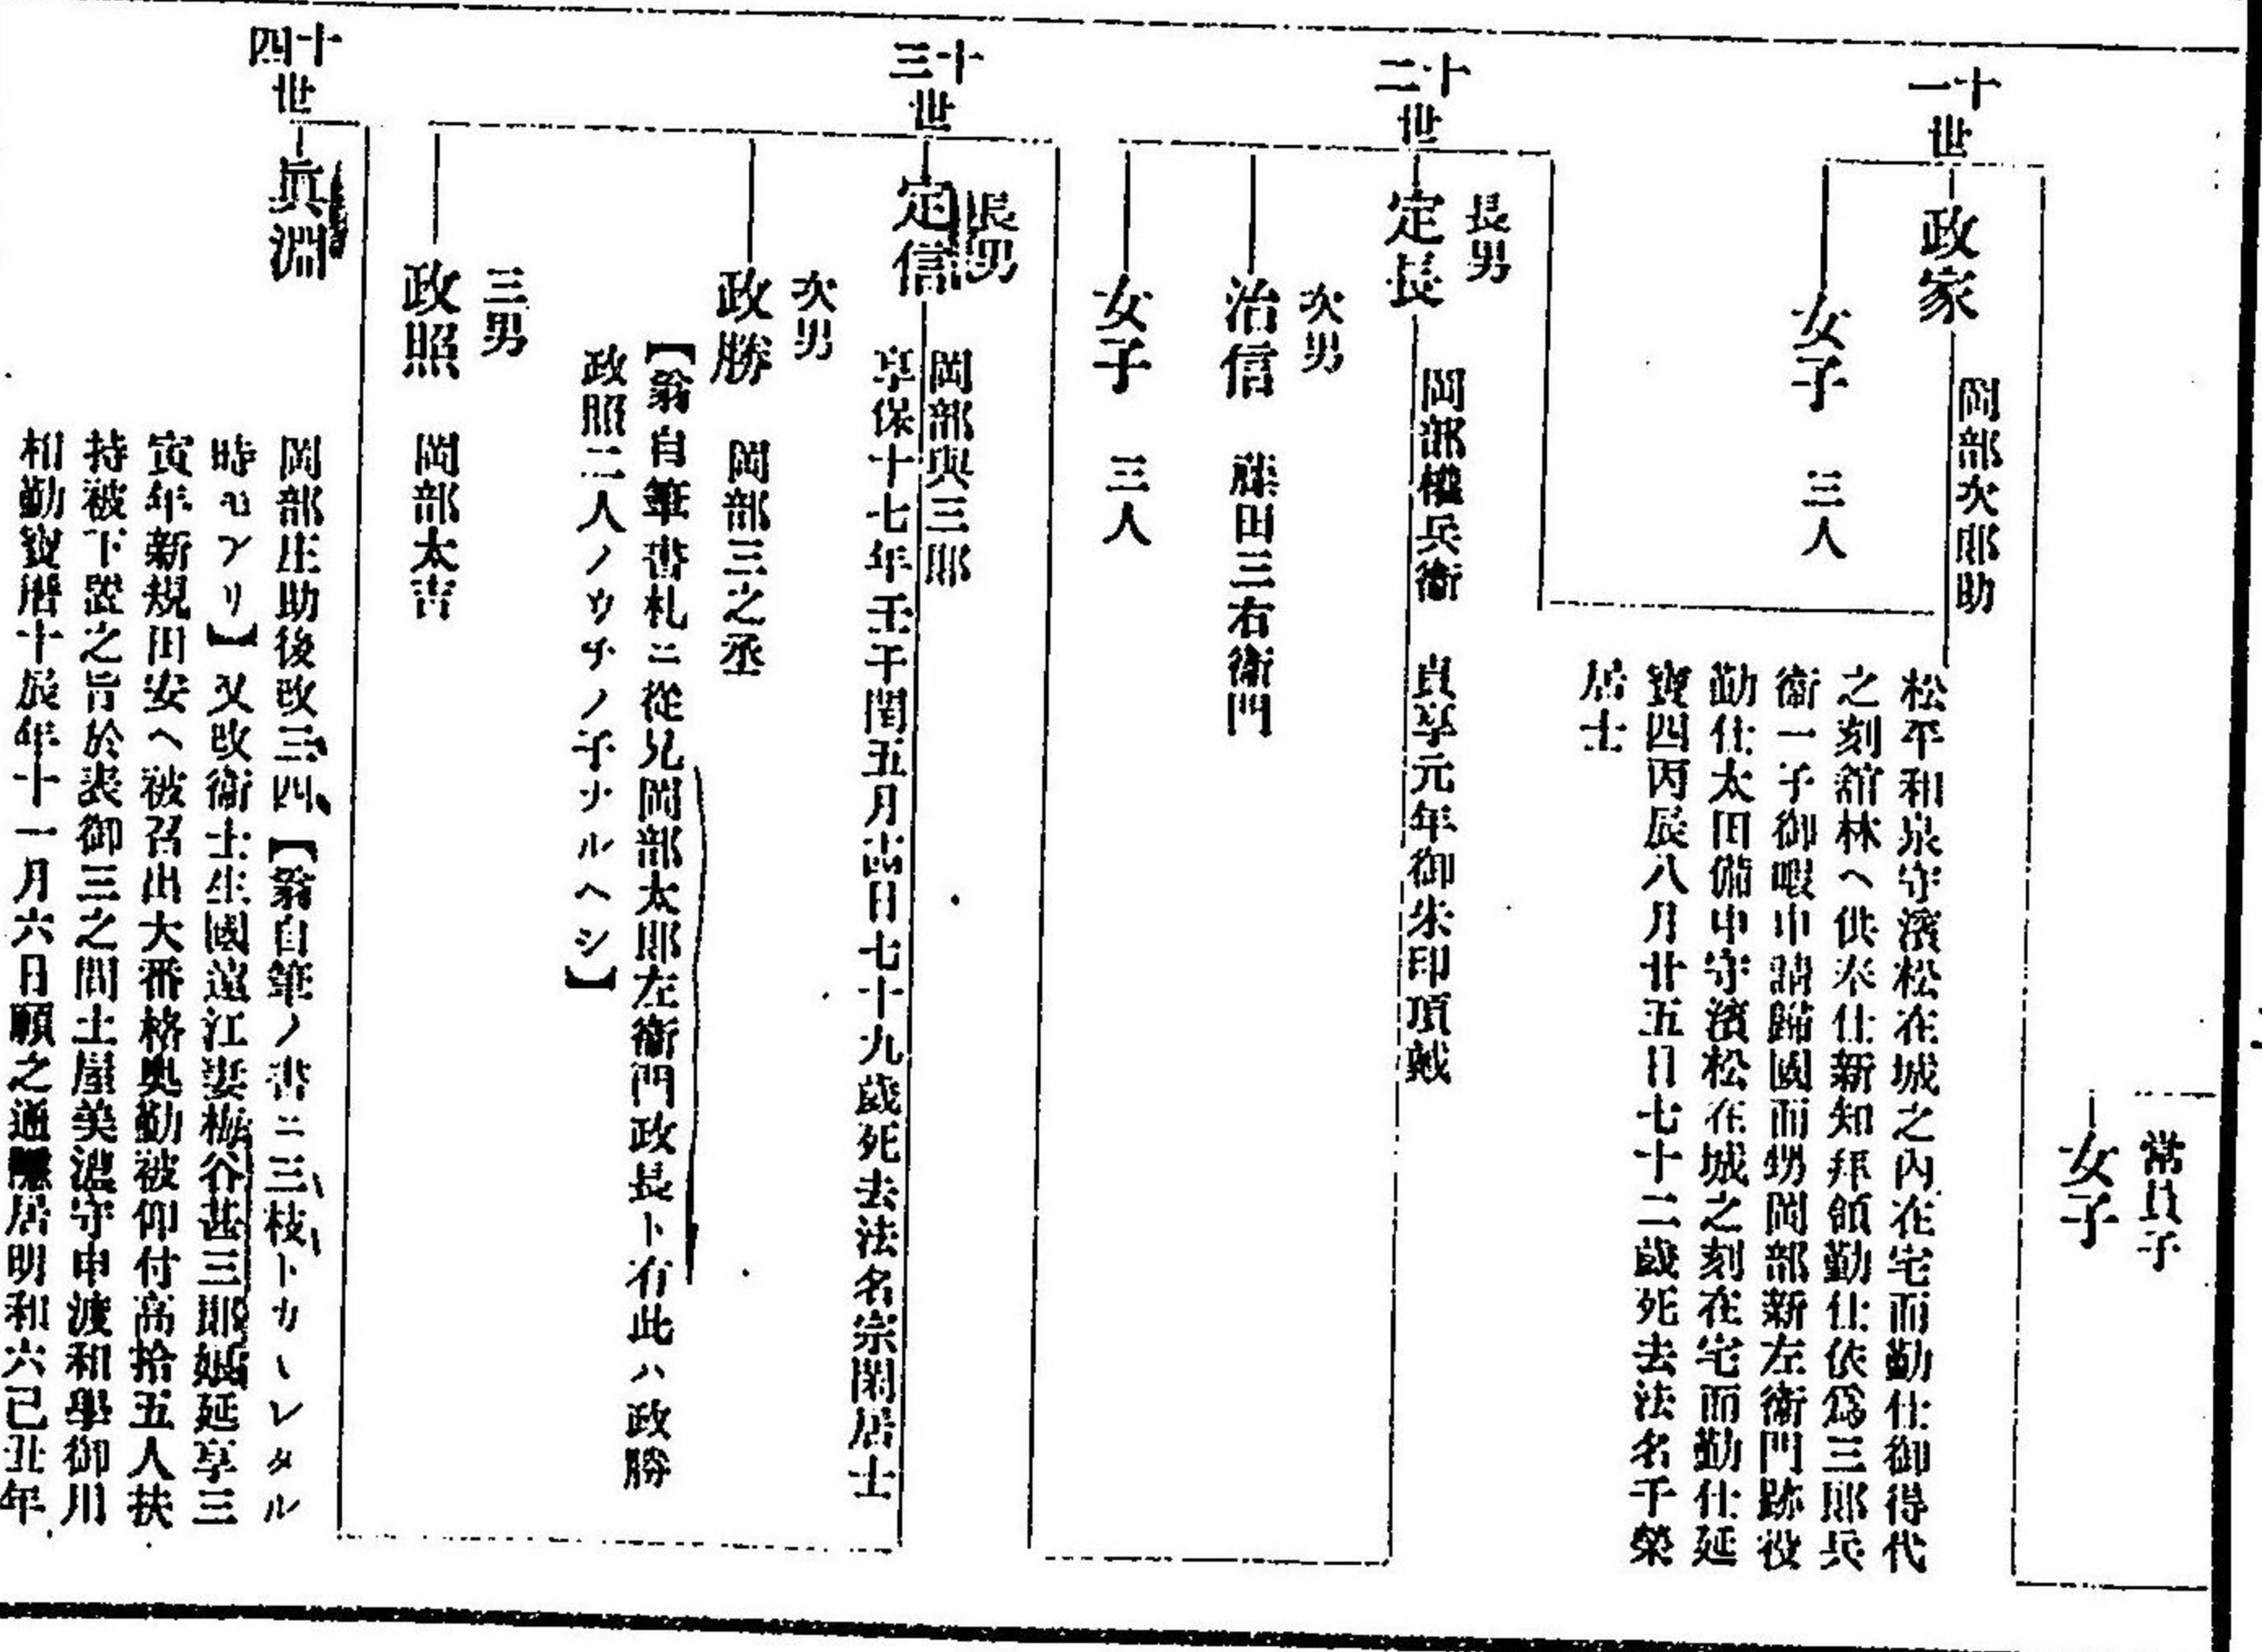 常員子
女子
十一世
政家
岡部次郎助
松平和泉守濱松在城之內在宅而勤仕御得代
之刻舘林ヘ供奉仕新知拜領勤仕依爲三郎兵
衞一子御暇申請歸國而甥岡部新左衞門跡役
勤仕太田備中守濱松在城之刻在宅而勤仕延
寶四丙辰八月廿五日七十二歲死去法名千榮
居士
女子 三人
十二世
長男
定長
岡部權兵衞 貞享元年御朱印頂戴
次男
治信 藤田三右衞門
女子 三人
十三世
長男
定信
岡部與三郎
享保十七年壬子閏五月十四日七十九歲死去法名宗閑居士
次男
政勝 岡部三之丞
【翁自筆書札ニ從兄岡部太郎左衞門政長ト有此ハ政勝
政照二人ノウチノ子ナルヘシ】
三男
政照 岡部太吉
十四世
眞淵
岡部庄助後改三四【翁自筆ノ書ニ三枝トカヽレタル
時モアリ】又改衞士生國遠江妻梅谷甚三郎娘延享三
寅年新規田安ヘ被召出大番格奧勤被仰付高拾五人扶
持被下置之旨於表御三之間土屋美濃守申渡和學御用
相勤寶曆十辰年十一月六日願之通隱居明和六己丑年